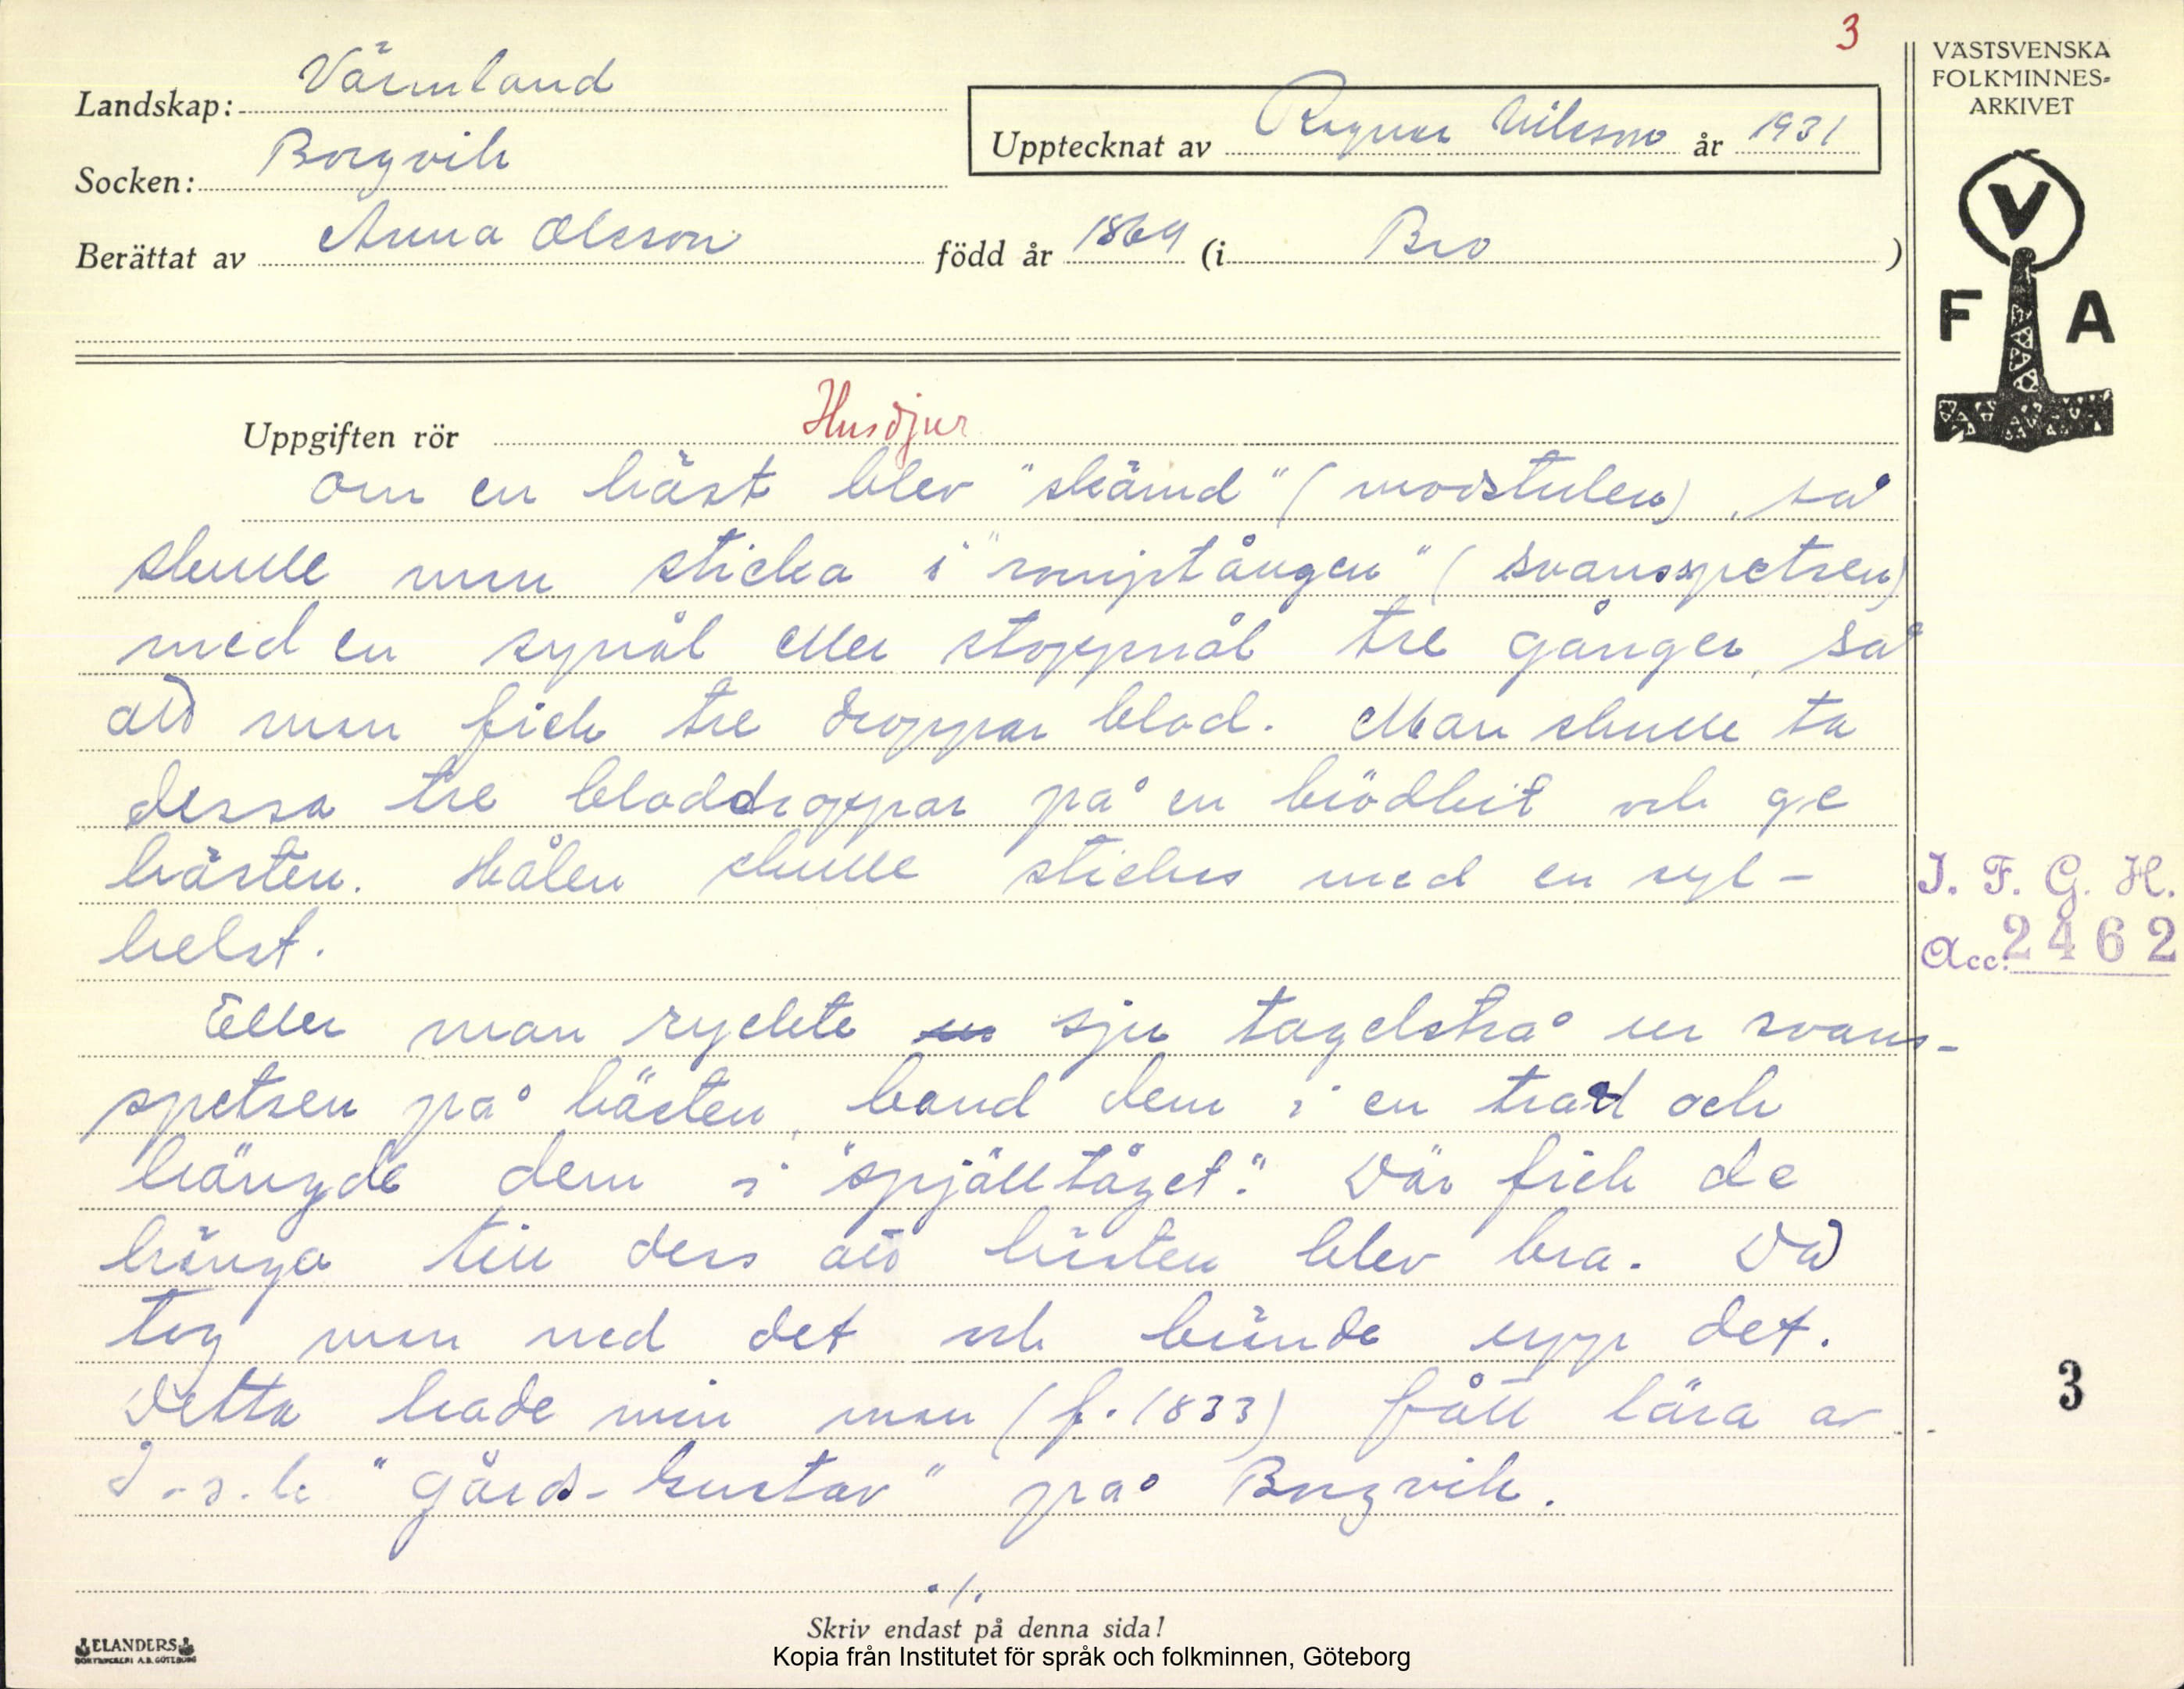 3
VÄSTSVENSKA
FOLKMINNES-
ARKIVET
Landskap: Värmland
Upptecknat av Ragnar Nilsson år 1931
Socken: Borgvik
Berättat av Anna Olsson född år 1869 (i Bro)
V
F A
Uppgiften rör Husdjur
Om en häst blev "skämd" (modstulen), så
skulle man sticka i "rompetången" (svansspetsen)
med en synål eller stoppnål tre gånger, så
att man fick tre droppar blod. Man skulle ta
dessa tre bloddroppar på en brödbit och ge
hästen. Hålen skulle stickas med en syl -
helst.
Eller man ryckte sju tagelstrå ur svans-
spetsen på hästen, band dem i en tråd och
hängde dem i "spjälltåget". Där fick de
hänga till dess att hästen blev bra. Då
tog man ned det och brände upp det.
Detta hade min man (f. 1833) fått lära av
d.s.k. "Gårds-Gustav" på Borgvik.
./.
Skriv endast på denna sida!
Kopia från Institutet för språk och folkminnen, Göteborg
ELANDERS
BOKTRYCKERI A.B. GÖTEBORG
I. F. G. H.
Acc. 2462
3